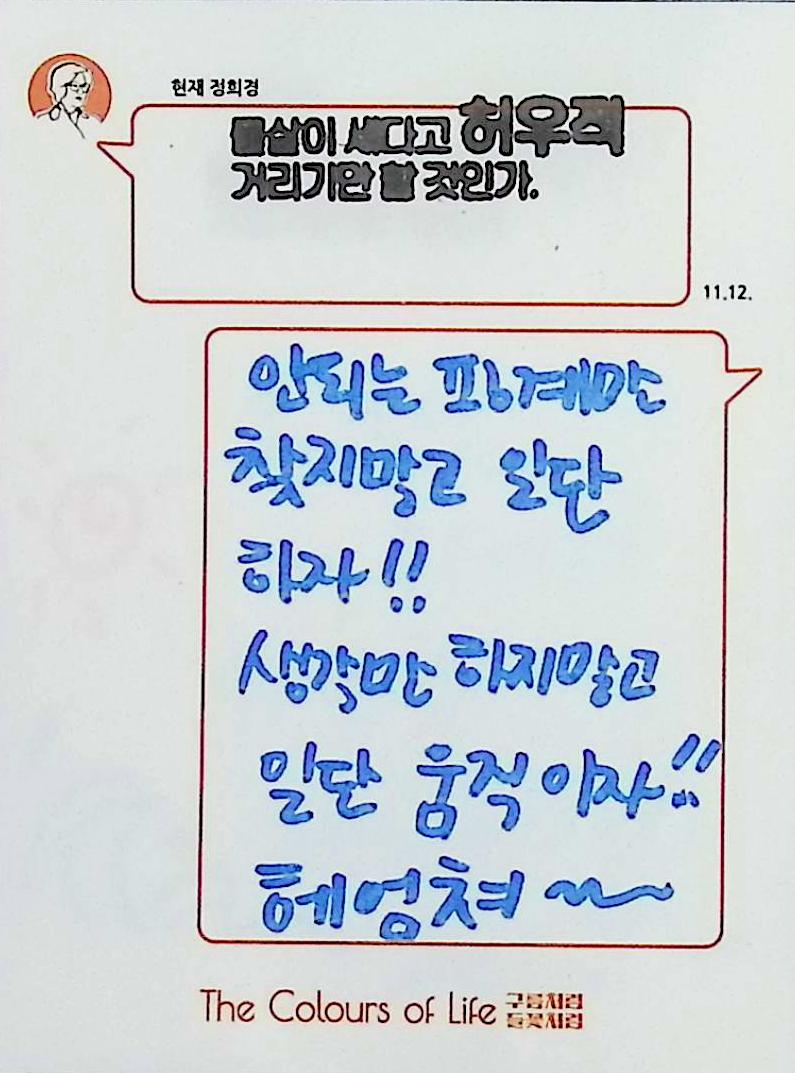 현재 정희경
물살이 세다고 허우적
거리기만 할 것인가.
11.12.
안되는 핑계만
찾지말고 일단
하자!!
생각만 하지말고
일단 움직이자!!
헤엄쳐~
The Colours of Life 구름처럼
들꽃처럼